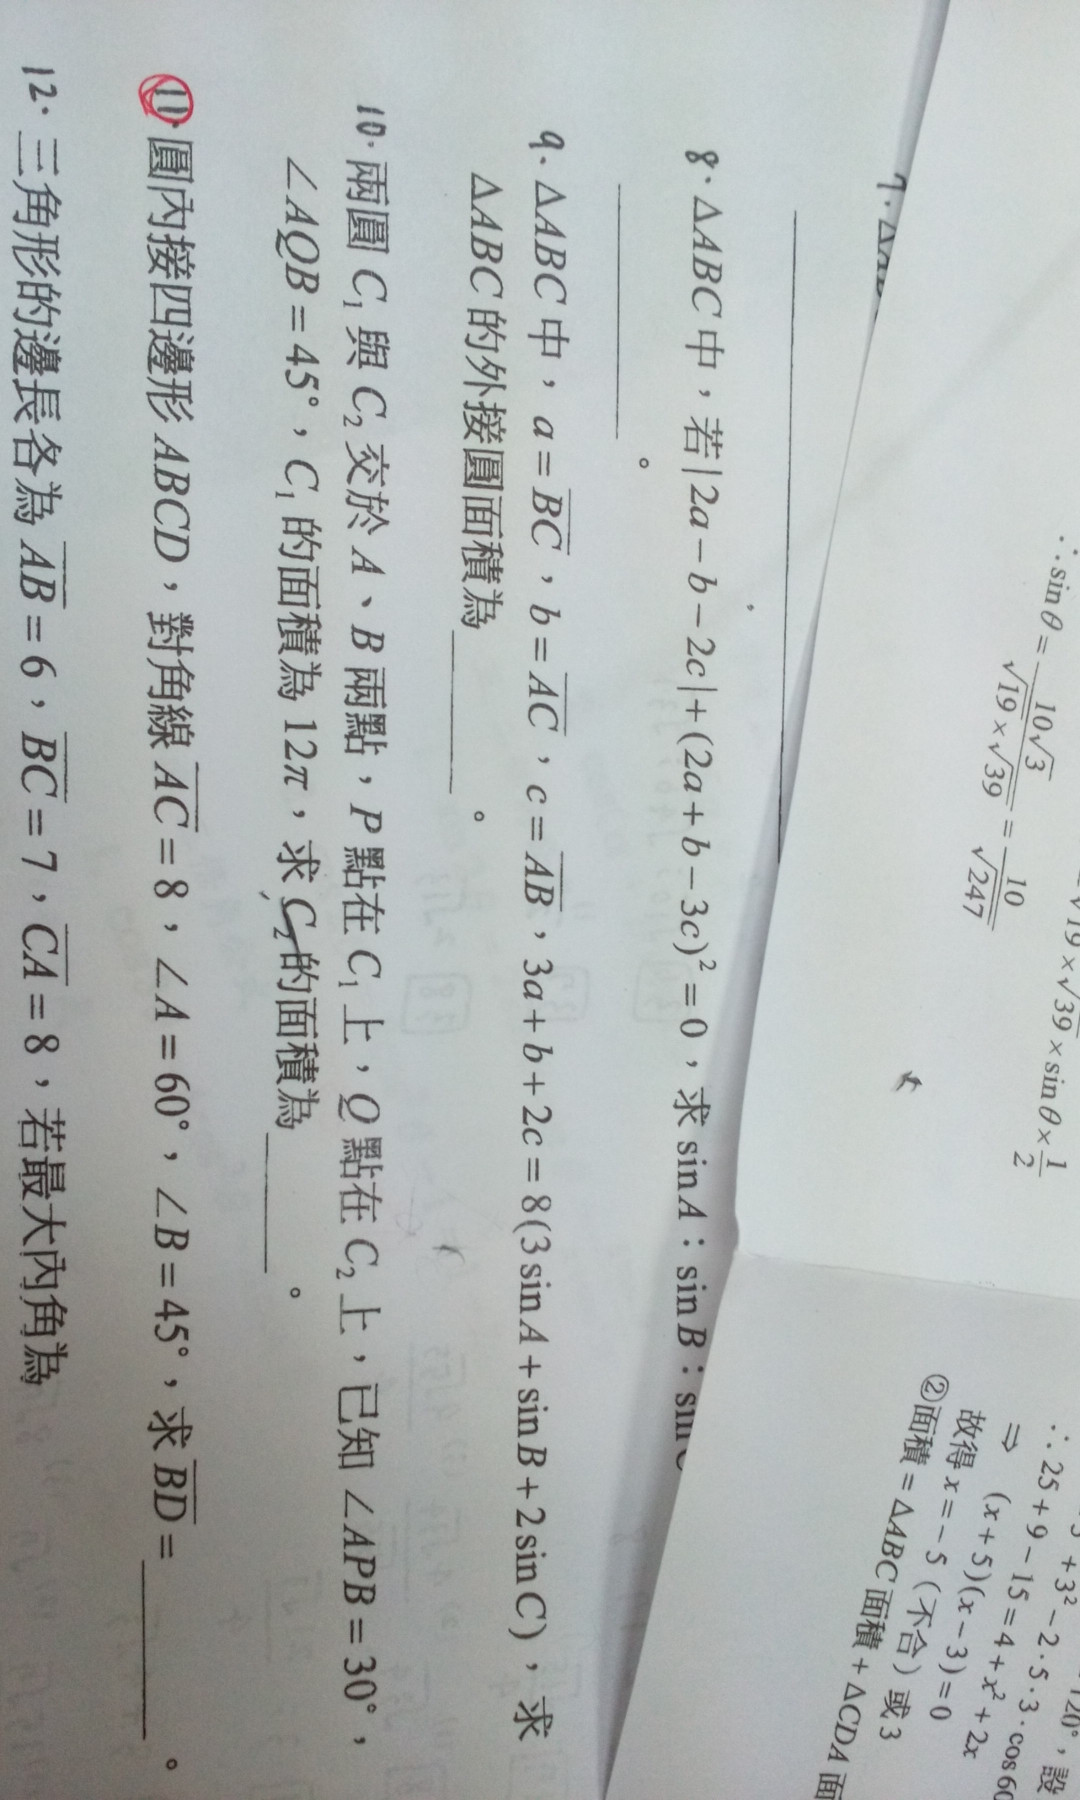 √19×√39×sinθ×1/2
∴sinθ=10√3/(√19×√39)=10/√247
+3²−2·5·3·cos60
∴25+9−15=4+x²+2x
⇒ (x+5)(x−3)=0
故得x=−5（不合）或3
②面積=△ABC面積+△CDA面
7.
8.△ABC中，若|2a−b−2c|+(2a+b−3c)²=0，求sinA：sinB：sin
______。
9.△ABC中，a=B̅C̅，b=A̅C̅，c=A̅B̅，3a+b+2c=8(3sinA+sinB+2sinC)，求
△ABC的外接圓面積為______。
10.兩圓C₁與C₂交於A、B兩點，P點在C₁上，Q點在C₂上，已知∠APB=30°，
∠AQB=45°，C₁的面積為12π，求C₂的面積為______。
11.圓內接四邊形ABCD，對角線A̅C̅=8，∠A=60°，∠B=45°，求B̅D̅=______。
12.三角形的邊長各為A̅B̅=6，B̅C̅=7，C̅A̅=8，若最大內角為